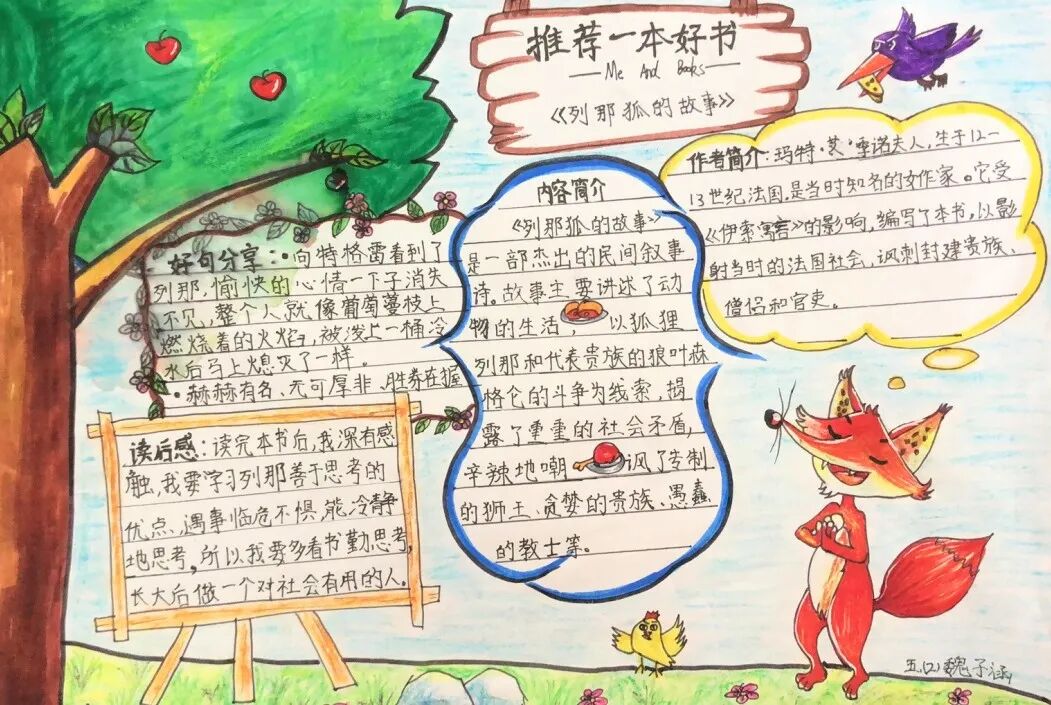 推荐一本好书
—Me And Books—
《列那狐的故事》
作者简介：玛特·艾·季诺夫人，生于12—
13世纪法国，是当时知名的女作家。它受
《伊索寓言》的影响，编写了本书，以影
射当时的法国社会，讽刺封建贵族、
僧侣和官吏。
内容简介
《列那狐的故事》
是一部杰出的民间叙事
诗。故事主要讲述了动
物的生活 以狐狸
列那和代表贵族的狼叶森
格仑的斗争为线索，揭
露了重重的社会矛盾，
辛辣地嘲 讽了专制
的狮王、贪婪的贵族、愚蠢
的教士等。
好句分享：·向特格雷看到了
列那，愉快的心情一下子消失
不见，整个人就像葡萄蔓枝上
燃烧着的火焰，被泼上一桶冷
水后马上熄灭了一样。
·赫赫有名、无可厚非、胜券在握
读后感：读完本书后，我深有感
触，我要学习列那善于思考的
优点、遇事临危不惧，能冷静
地思考。所以我要多看书勤思考，
长大后做一个对社会有用的人。
五(2)魏子涵